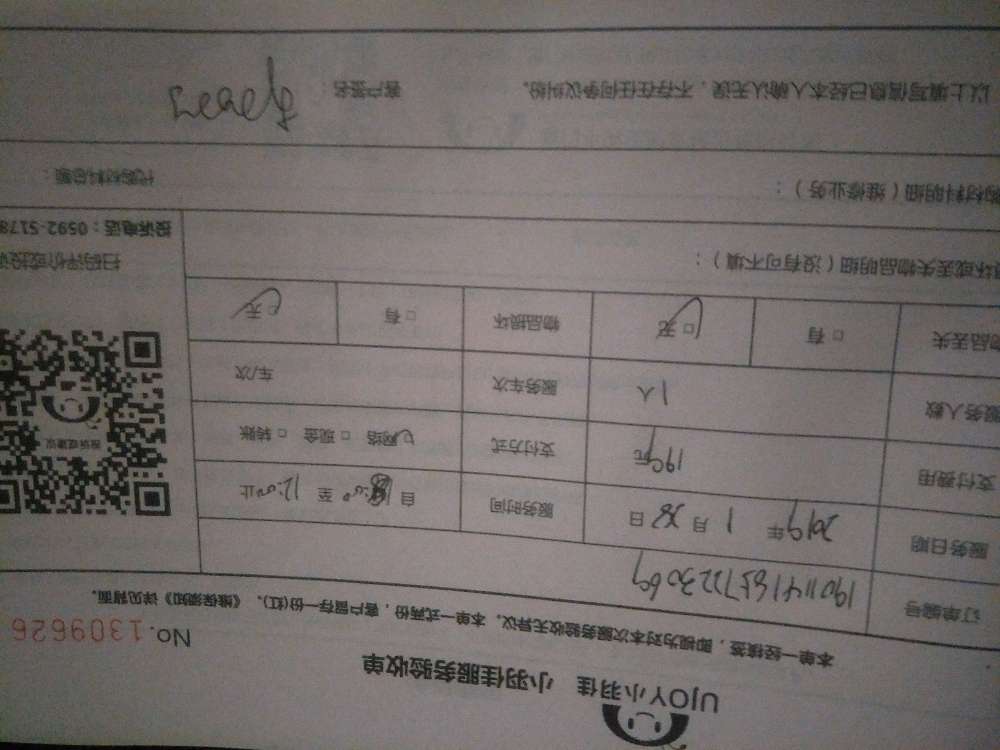 UJOY小羽佳 小羽佳服务验收单
No.1309626
本单一经核签，即视为对本次服务验收无异议。本单一式两份，客户留存一份(红)。《维保须知》详见背面。
订单编号
服务日期 2019年 1月 28日 服务时间 自 至 12:00止
支付费用 199元 支付方式 网络 □ 现金 □ 转账
服务人数 1人 服务车次 车/次
物品丢失 □ 有 □ 无 物品损坏 □ 有 □ 无
投诉或建议
扫码评价或投诉
投诉电话：0592-5178
损坏或丢失物品明细（没有可不填）：
材料明细（维修业务）： 代购材料总额：
以上填写信息已经本人确认无误，不存在任何争议纠纷。 客户签名：